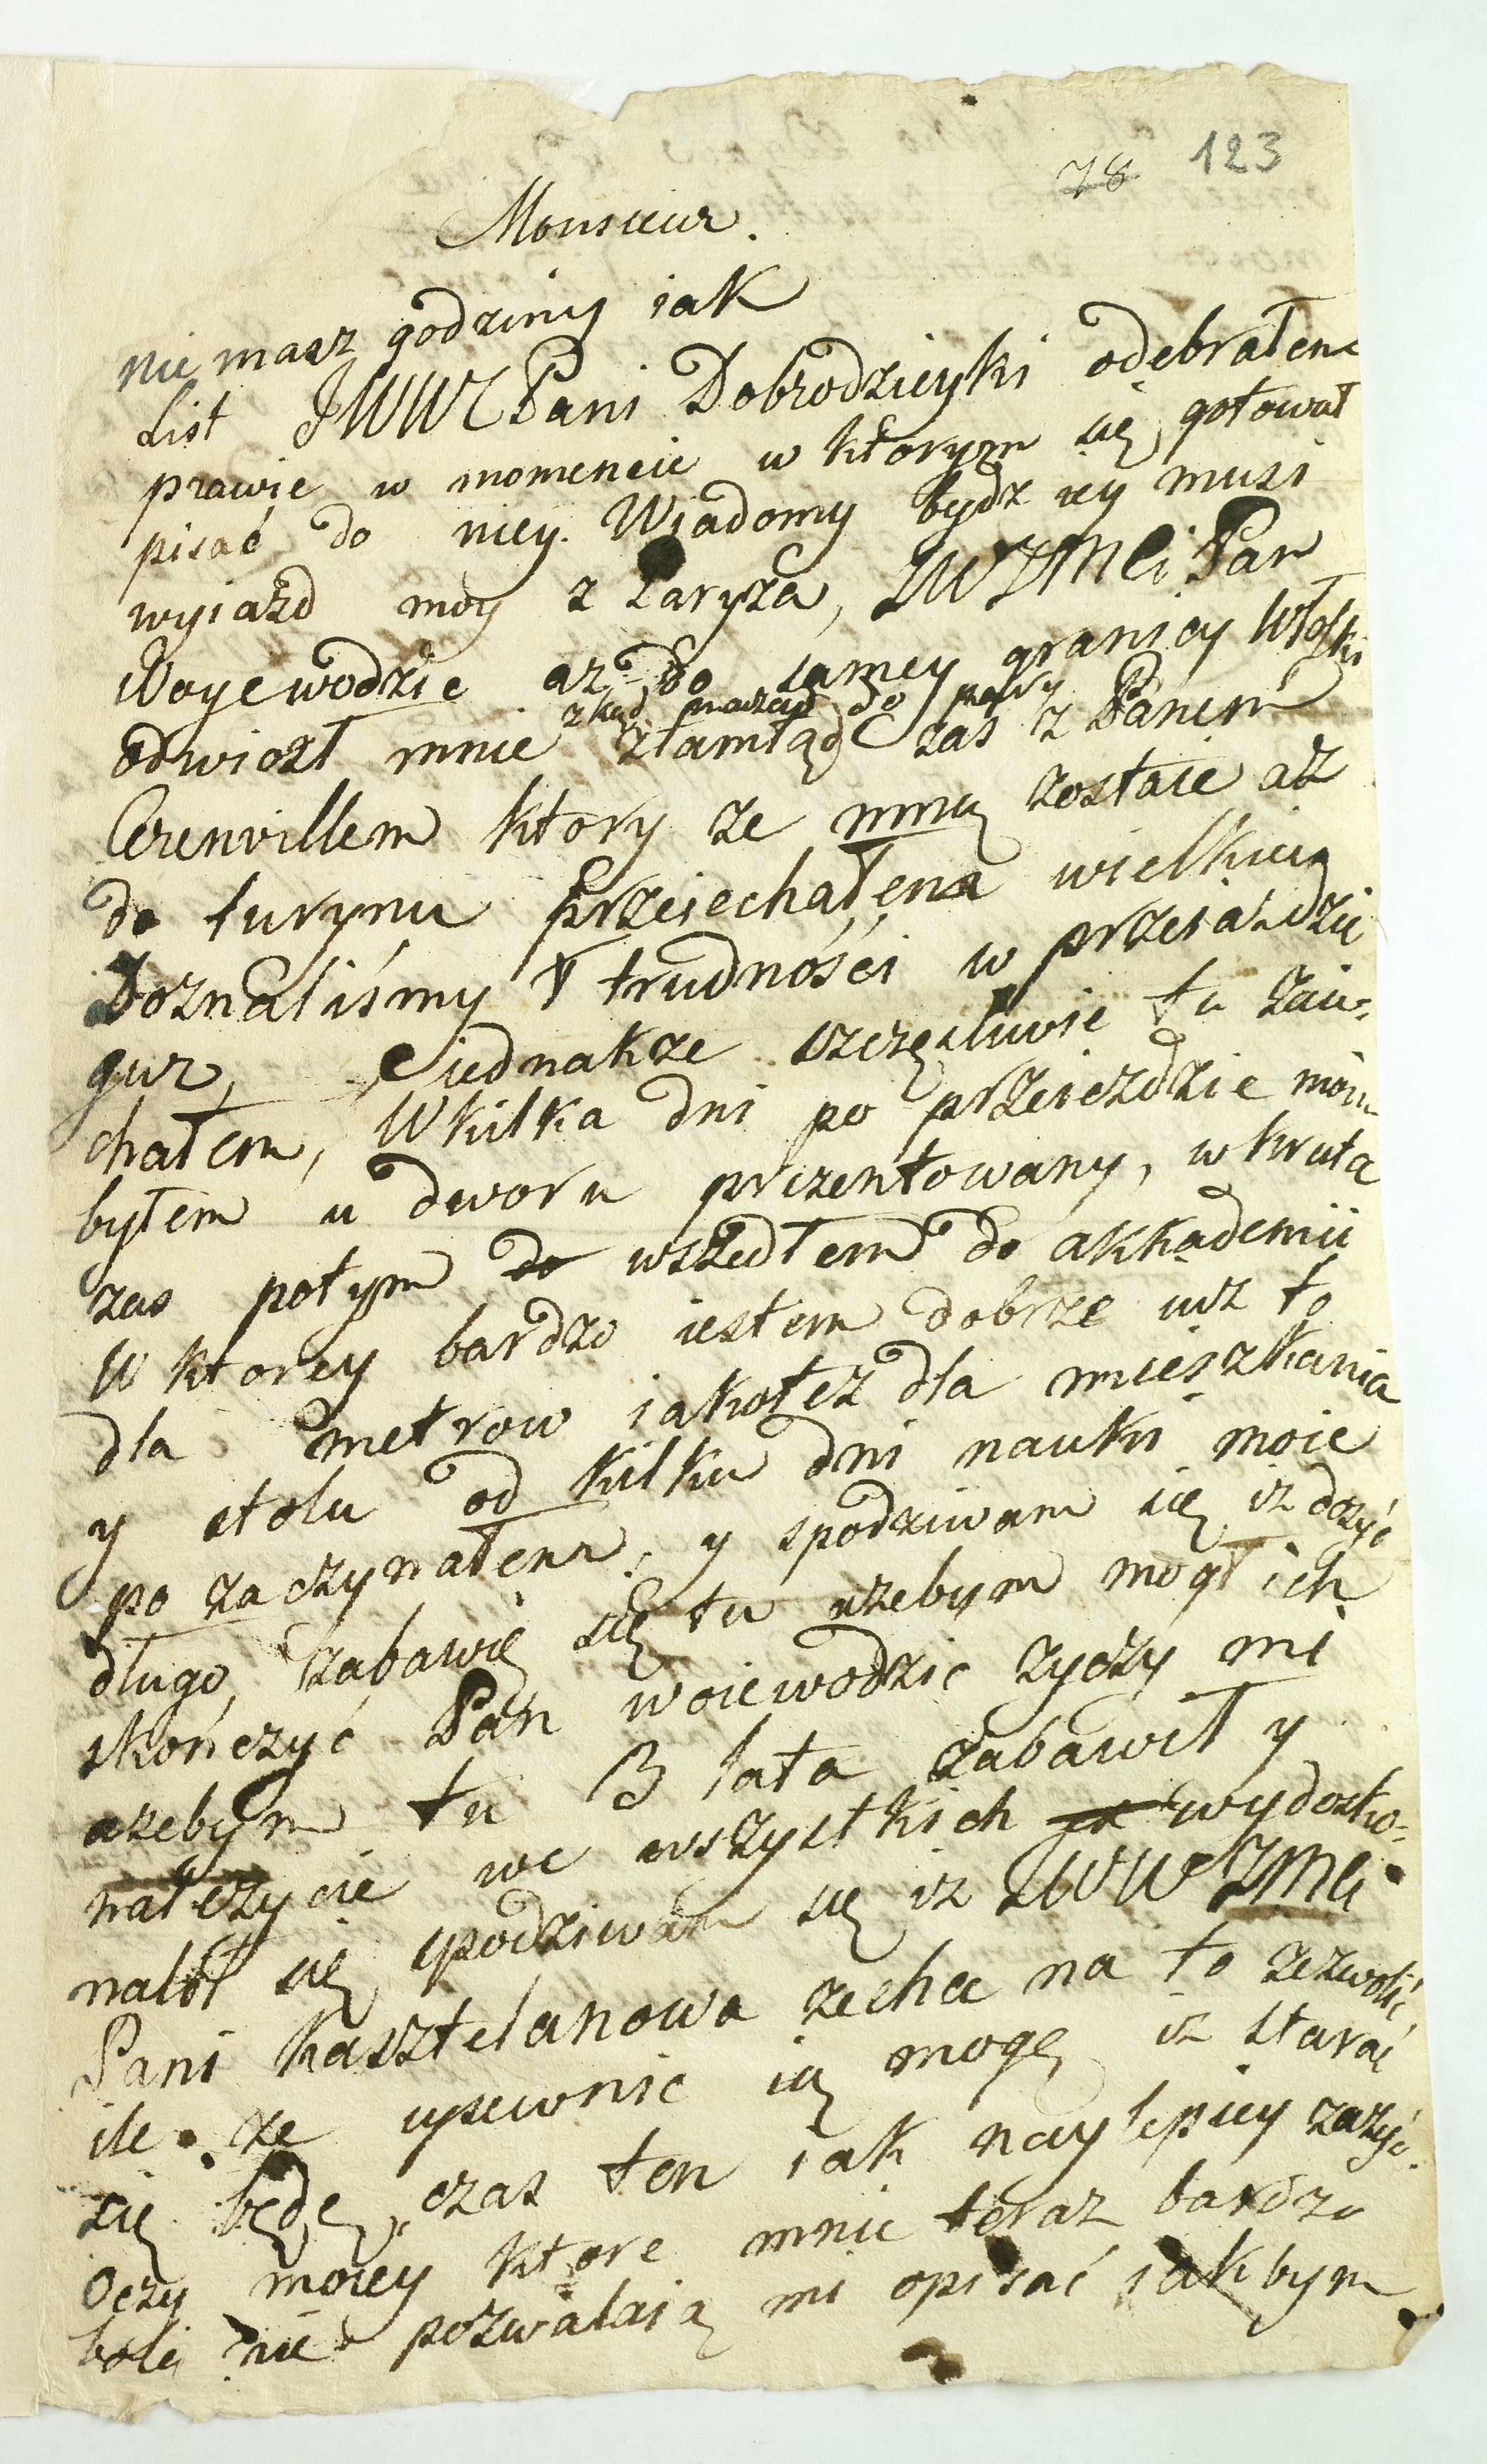 78 123
Monsieur.
nie masz godziny iak
List JWWM Pani Dobrodzieyki odebrałem
prawie w momencie w ktorym się gotował
pisać do niey. Wiadomy bydz iey musi
wyiazd moy z Paryża, JWJMCi Pan
Woyewodzic az do samey granicy Włoski
zkąd nazad do
odwiozł mnie ztamtąd zas z Panem
Cerenvillem ktory ze mną zostaie aż
do turynu przeiechałem wielkich
Doznaliśmy trudności w przeiazdzie
gur, iednakze szczęsliwie tu zaie-
chałem, W kilka dni po przeiezdzie moim
byłem u dworu prezentowany, wkrutce
zas potym do wszedłem do akkademii
W ktorey bardzo iestem dobrze iuz to
dla metrow iakoteż dla mieszkania
y stołu od kilku dni nauki moie
po zaczynałem, y spodziwam się iz dosyć
długo zabawię się tu azebym mogł ich
skończyć Pan woiewodzic zyczy mi
azebym tu 3 lata zabawił y
należycie we wszystkich wydosko-
nalił się spodziwam się iz JWWJMCi
Pani Kasztelanowa zechce na to zezwolić
ile ze upewnic ią mogę iz starać
się będę czas ten iak naylepiey zazyć.
Oczy moiey ktore mnie teraz bardzo
bolą nie pozwalaią mi opisać iakbym